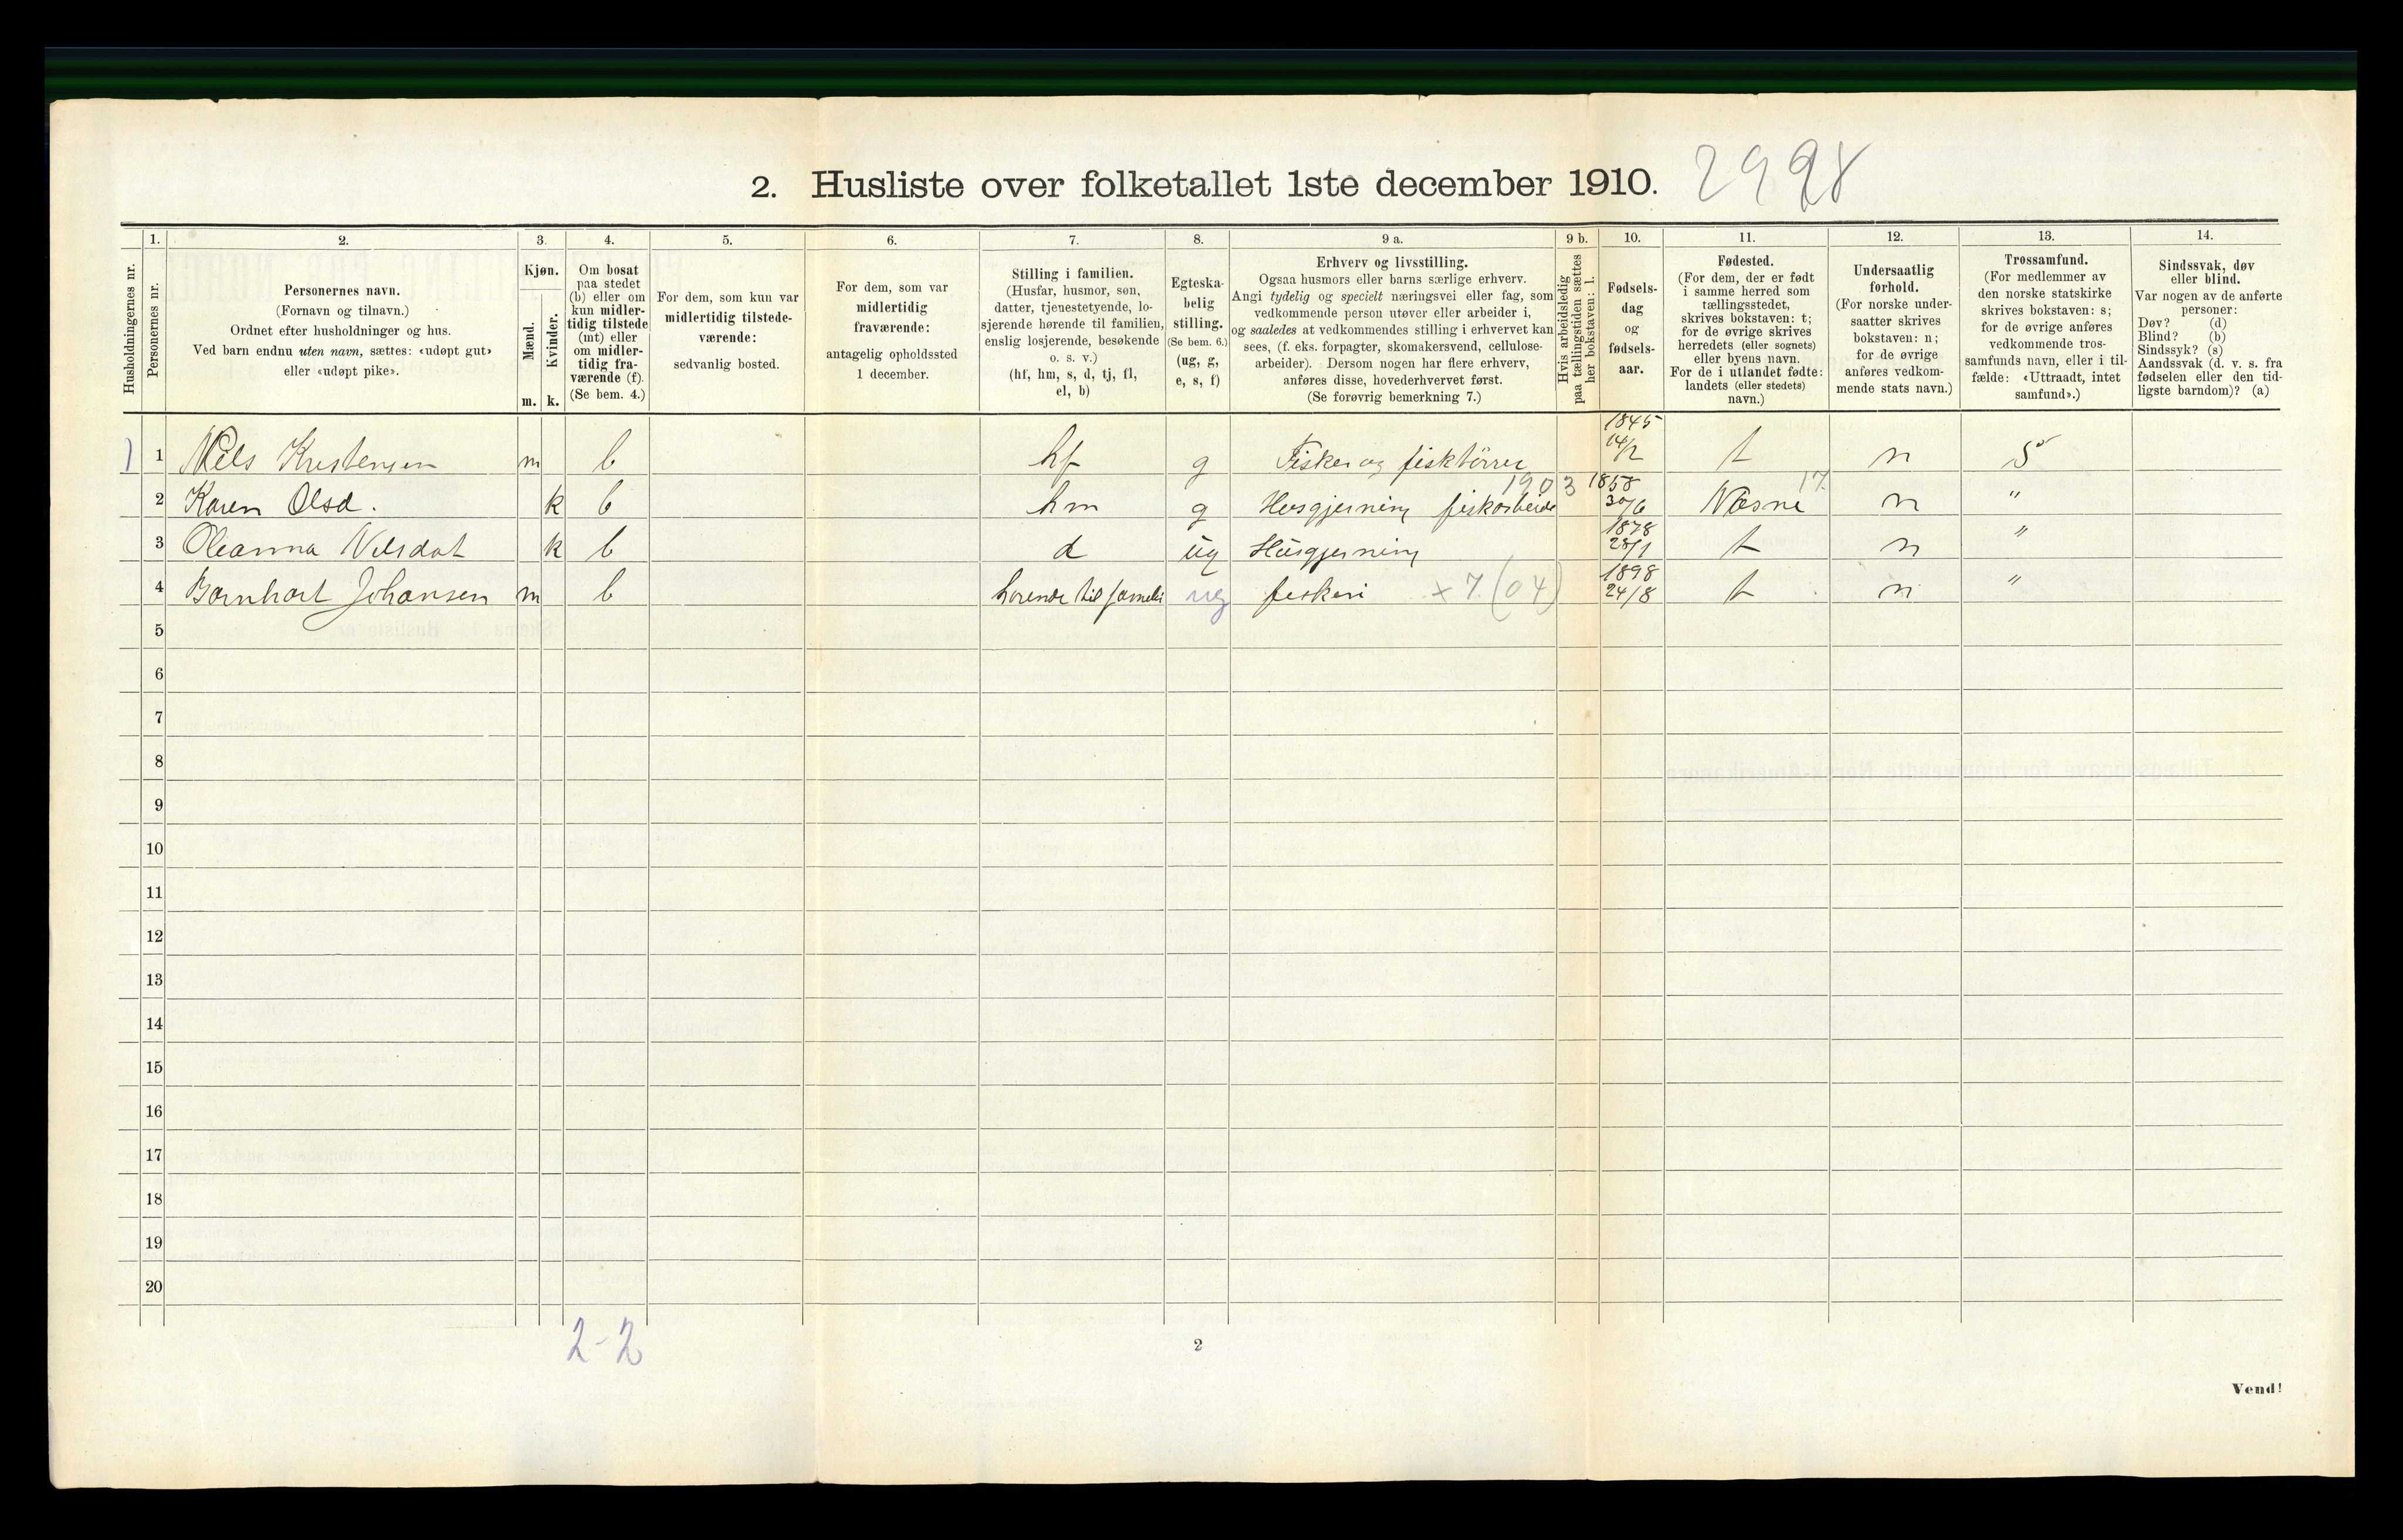 2. Husliste over folketallet 1ste december 1910. 2998
Husholdningernes nr.
1. Personernes nr.
2. Personernes navn. (Fornavn og tilnavn.) Ordnet efter husholdninger og hus. Ved barn endnu uten navn, sættes: «udøpt gut» eller «udøpt pike».
3. Kjøn. Mænd. m. Kvinder. k.
4. Om bosat paa stedet (b) eller om kun midlertidig tilstede (mt) eller om midlertidig fraværende (f). (Se bem. 4.)
5. For dem, som kun var midlertidig tilstedeværende: sedvanlig bosted.
6. For dem, som var midlertidig fraværende: antagelig opholdssted 1 december.
7. Stilling i familien. (Husfar, husmor, søn, datter, tjenestetyende, losjerende hørende til familien, enslig losjerende, besøkende o. s. v.) (hf, hm, s, d, tj, fl, el, b)
8. Egteskabelig stilling. (Se bem. 6.) (ug, g, e, s, f)
9 a. Erhverv og livsstilling. Ogsaa husmors eller barns særlige erhverv. Angi tydelig og specielt næringsvei eller fag, som vedkommende person utøver eller arbeider i, og saaledes at vedkommendes stilling i erhvervet kan sees, (f. eks. forpagter, skomakersvend, cellulosearbeider). Dersom nogen har flere erhverv, anføres disse, hovederhvervet først. (Se forøvrig bemerkning 7.)
9 b. Hvis arbeidsledig paa tællingstiden sættes her bokstaven: l.
10. Fødselsdag og fødselsaar.
11. Fødested. (For dem, der er født i samme herred som tællingsstedet, skrives bokstaven: t; for de øvrige skrives herredets (eller sognets) eller byens navn. For de i utlandet fødte: landets (eller stedets) navn.)
12. Undersaatlig forhold. (For norske undersaatter skrives bokstaven: n; for de øvrige anføres vedkommende stats navn.)
13. Trossamfund. (For medlemmer av den norske statskirke skrives bokstaven: s; for de øvrige anføres vedkommende trossamfunds navn, eller i tilfælde: «Uttraadt, intet samfund».)
14. Sindssvak, døv eller blind. Var nogen av de anførte personer: Døv? (d) Blind? (b) Sindssyk? (s) Aandssvak (d. v. s. fra fødselen eller den tidligste barndom)? (a)
1 1 Nils Kristensen m b hf g Fisker og fisktörrer 1845 14/2 t n S
2 Karen Olsd. k b hm g Husgjerning fiskarbeide 1903 1858 30/6 Næsne 17. n "
3 Oleanna Nilsdat k b d ug Husgjerning 1878 28/1 t n "
4 Barnhart Johansen m b hörende til famelie ug feskeri x 7. (04) 1898 24/8 t n "
5
6
7
8
9
10
11
12
13
14
15
16
17
18
19
20
2-2
2
Vend!